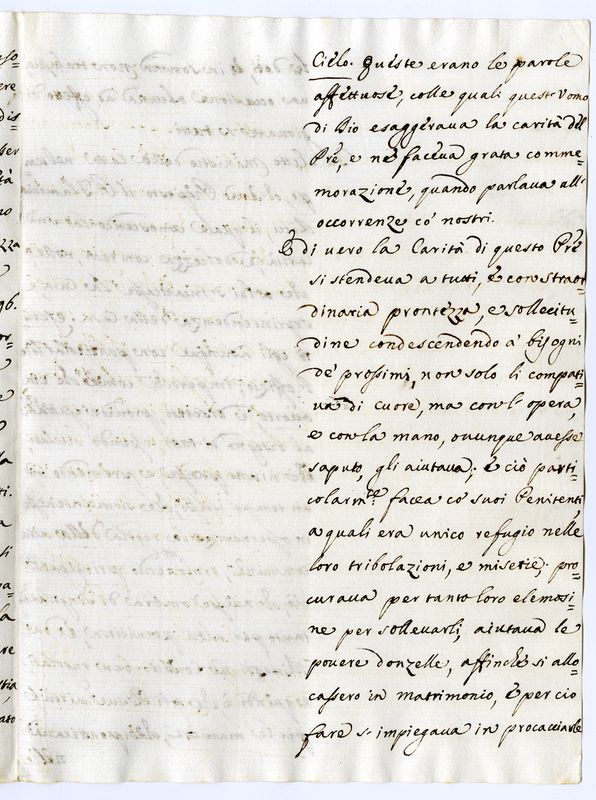 Cielo. Queste erano le parole
affettuose, colle quali quest'Vomo
di Dio esaggeraua la carità del
Pre, e ne faceua grata comme=
morazione, quando parlaua all'
occorrenze co' nostri.
E di uero la Carità di questo Pre
si stendeua a tutti, e con straor=
dinaria prontezza, e sollecitu=
dine condescendendo a' bisogni
de' prossimi, non solo li compati=
ua di cuore, ma con l'opera
e con la mano, ouunque auesse
saputo, gli aiutaua; e ciò parti=
colarmte facea co' suoi Penitenti
a quali era unico refugio nelle
loro tribolazioni, e miserie; pro=
curaua per tanto loro elemosi=
ne per solleuarli, aiutaua le
pouere donzelle, affinchè si allo=
cassero in matrimonio, e per ciò
fare s'impiegaua in procacciarle